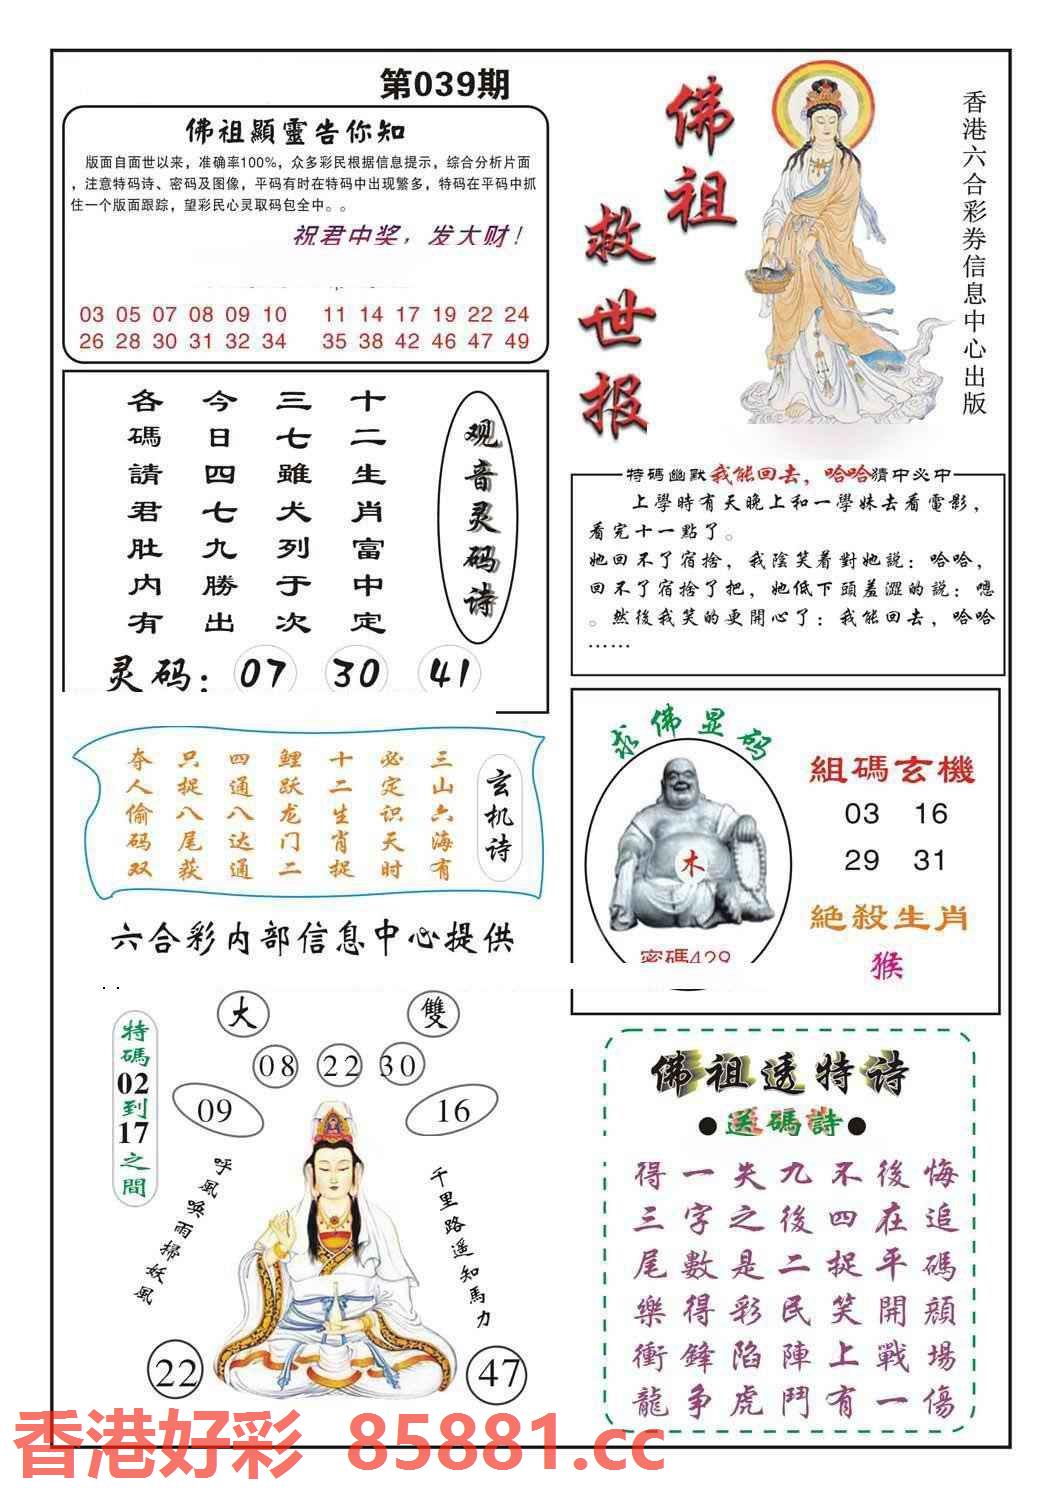 第039期
佛祖顯靈告你知
版面自面世以来，准确率100%，众多彩民根据信息提示，综合分析片面
，注意特码诗、密码及图像，平码有时在特码中出现繁多，特码在平码中抓
住一个版面跟踪，望彩民心灵取码包全中。。
祝君中奖，发大财！
03 05 07 08 09 10 11 14 17 19 22 24
26 28 30 31 32 34 35 38 42 46 47 49
佛祖
救世报
香港六合彩券信息中心出版
观音灵码诗
十二生肖富中定
三七雖犬列于次
今日四七九勝出
各碼請君肚内有
灵码：07 30 41
特碼幽默我能回去，哈哈猜中必中
上學時有天晚上和一學妹去看電影，
看完十一點了。
她回不了宿捨，我陰笑着對她説：哈哈，
回不了宿捨了把，她低下頭羞澀的説：嗯
。然後我笑的更開心了：我能回去，哈哈
……
玄机诗
三山六海有
必定识天时
十二生肖捉
鲤跃龙门二
四通八达通
只捉八尾获
夺人偷码双
六合彩内部信息中心提供
求佛显码
木
密碼429
組碼玄機
03 16
29 31
絶殺生肖
猴
特碼02到17之間
大 雙
08 22 30
09 16
呼風唤雨掃妖風
千里路遥知馬力
22 47
佛祖透特诗
●送碼詩●
得一失九不後悔
三字之後四在追
尾數是二捉平碼
樂得彩民笑開顔
衝鋒陷陣上戰場
龍争虎鬥有一傷
香港好彩 85881.cc